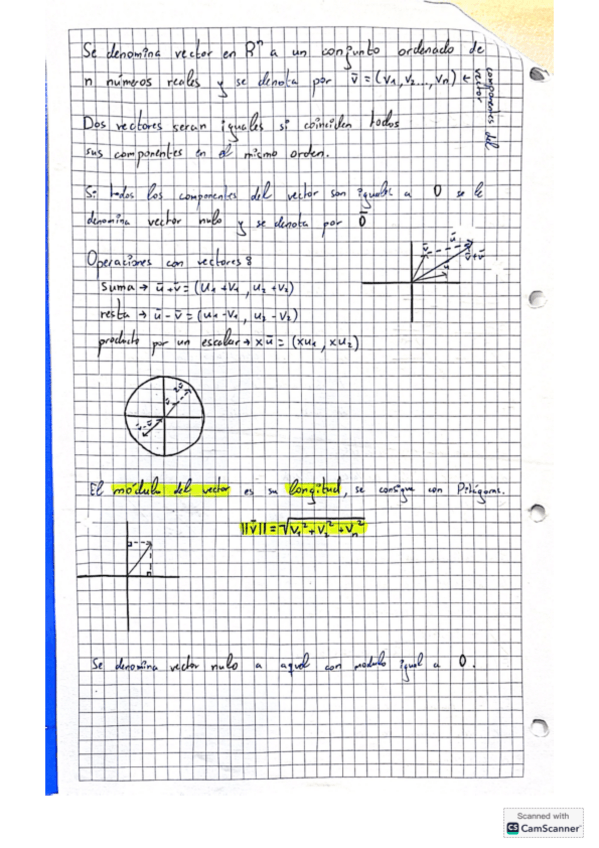 Se denomina vector en Rⁿ a un conjunto ordenado de
n números reales y se denota por v̄ = (v₁, v₂..., vₙ) ← componentes del vector.
Dos vectores seran iguales si coinciden todos
sus componentes en el mismo orden.
Si todos los componentes del vector son iguales a 0 se le
denomina vector nulo y se denota por 0̄
Operaciones con vectores:
suma → ū+v̄ = (u₁+v₁, u₂+v₂)
resta → ū-v̄ = (u₁-v₁, u₂-v₂)
producto por un escalar → xū = (xu₁, xu₂)
v̄
ū
ū+v̄
El módulo del vector es su longitud, se consigue con Pitágoras.
||v̄|| = √v₁²+v₂²+vₙ²
Se denomina vector nulo a aquel con modulo igual a 0.
Scanned with
CS CamScanner